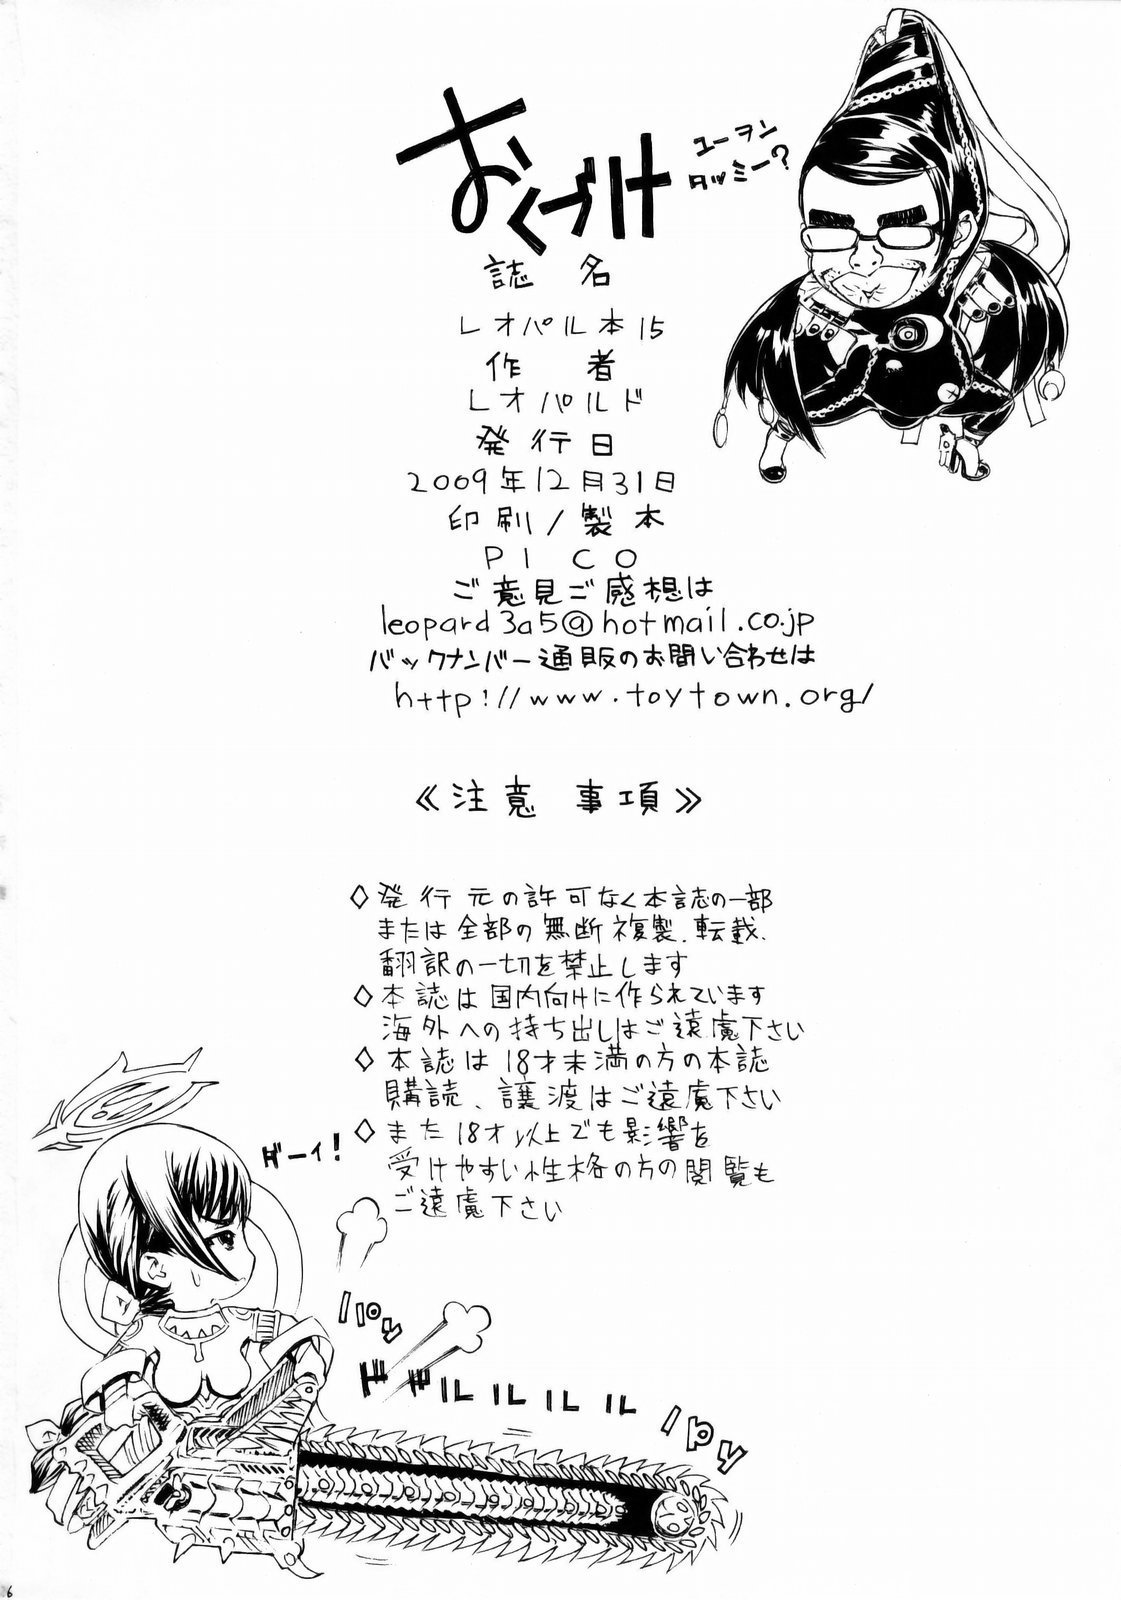 おくづけ
ユーヲン
タッミー?
誌名
レオパル本15
作者
レオパルド
発行日
2009年12月31日
印刷/製本
PICO
ご意見ご感想は
leopard3a5@hotmail.co.jp
バックナンバー通販のお問い合わせは
http://www.toytown.org/
≪注意 事項≫
◇発行元の許可なく本誌の一部
または全部の無断複製、転載、
翻訳の一切を禁止します
◇本誌は国内向けに作られています
海外への持ち出しはご遠慮下さい
◇本誌は18才未満の方の本誌
購読、譲渡はご遠慮下さい
◇また18才以上でも影響を
受けやすい性格の方の閲覧も
ご遠慮下さい
ダーイ!
パン
ドドルルルルル
パン
6